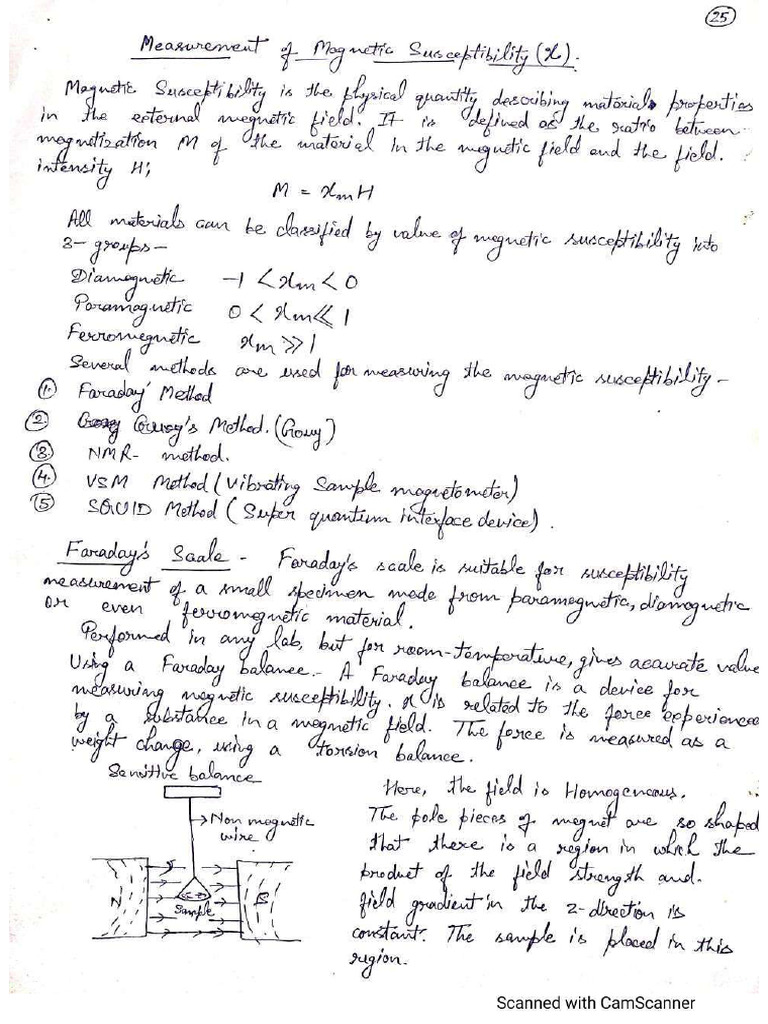 25
Measurement of Magnetic Susceptibility (χ).
Magnetic Susceptibility is the physical quantity describing materials properties
in the external magnetic field. It is defined as the ratio between
magnetization M of the material in the magnetic field and the field.
intensity H;
M = χmH
All materials can be classified by value of magnetic susceptibility into
3- groups-
Diamagnetic -1 < χm < 0
Paramagnetic 0 < χm << 1
Ferromagnetic χm >> 1
Several methods are used for measuring the magnetic susceptibility -
1. Faraday' Method
2. Gouy's Method. (Gouy)
3. NMR- method.
4. VSM Method (Vibrating Sample magnetometer)
5 SQUID Method (Super quantum interface device).
Faraday's Scale - Faraday's scale is suitable for susceptibility
measurement of a small specimen made from paramagnetic, diamagnetic
or even ferromagnetic material.
Performed in any lab, but for room-temperature, gives accurate value
Using a Faraday balance.- A Faraday balance is a device for
measuring magnetic susceptibility. χ is related to the force experience
by a substance in a magnetic field. The force is measured as a
weight change, using a torsion balance.
Sensitive balance
Non magnetic
wire
N
Sample
S
Here, the field is Homogeneous.
The pole pieces of magnet are so shaped
that there is a region in which the
product of the field strength and.
field gradient in the z-direction is
constant. The sample is placed in this
region.
Scanned with CamScanner